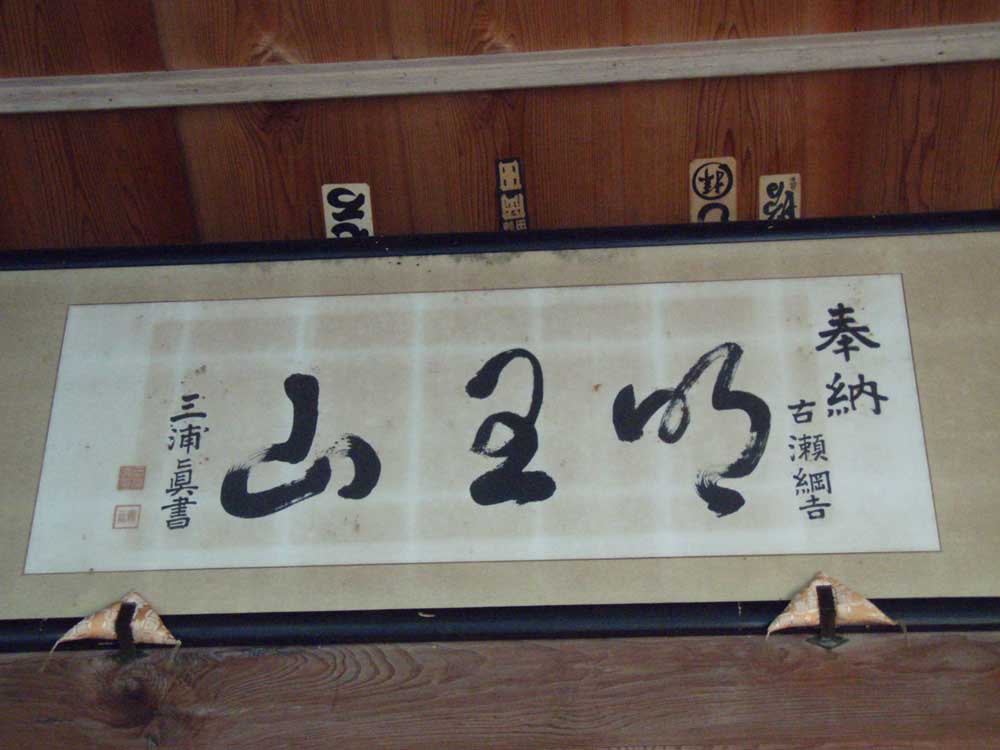 奉納
古瀬綱吉
明星山
三浦眞書